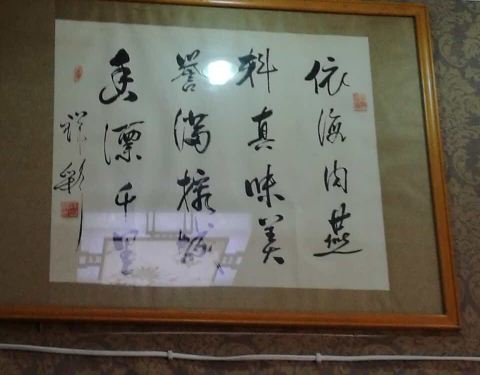 依海肉燕
料真味美
誉满榕城
香漂千里